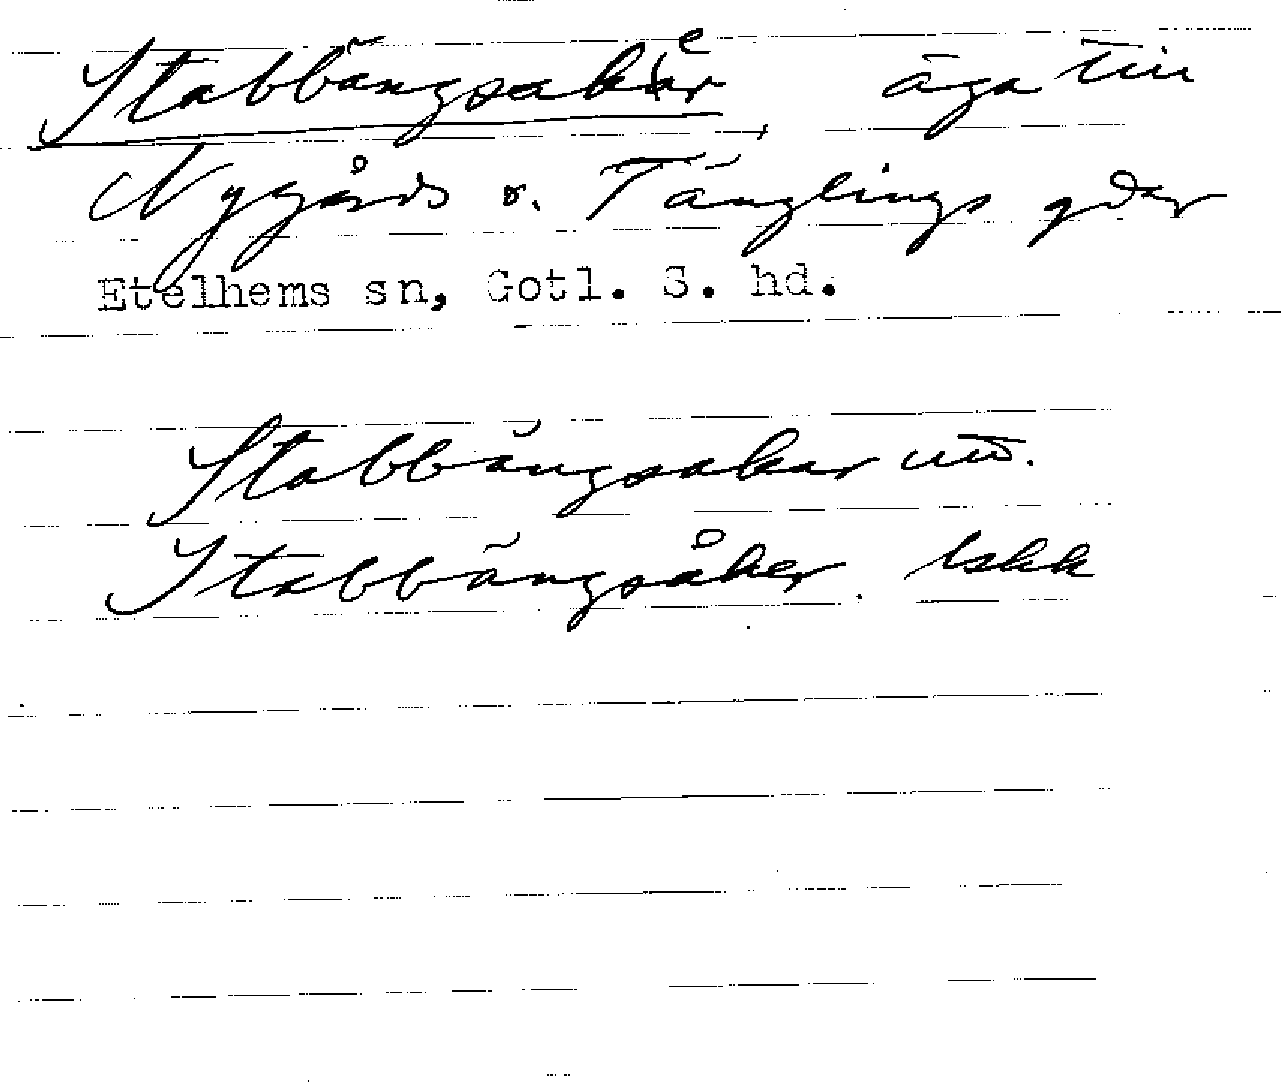 Stabbängsaker, äga till
Nygårds o. Tänglings gdar
Etelhems sn, Gotl. S. hd.
Stabbängsakar utt.
Stabbängsåker. lskk